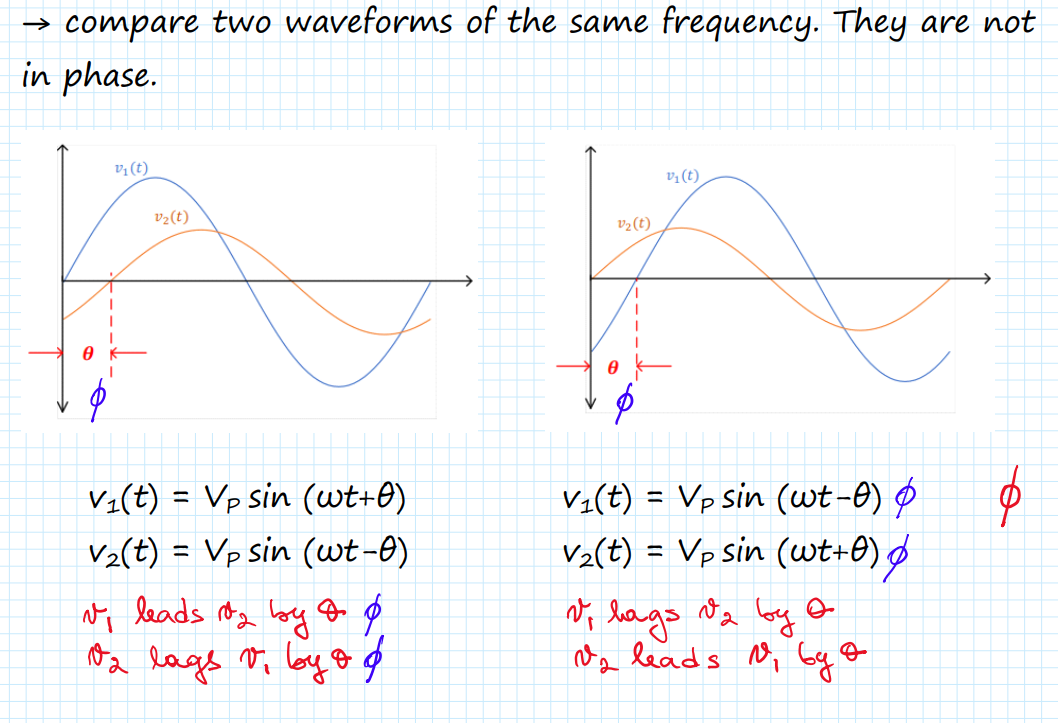 → compare two waveforms of the same frequency. They are not
in phase.
v₁(t)
v₂(t)
θ
ϕ
v₁(t)
v₂(t)
θ
ϕ
v₁(t) = Vₚ sin (ωt+θ)
v₂(t) = Vₚ sin (ωt-θ)
v₁ leads v₂ by θ ϕ
v₂ lags v₁ by θ ϕ
v₁(t) = Vₚ sin (ωt-θ) ϕ
v₂(t) = Vₚ sin (ωt+θ) ϕ
v₁ lags v₂ by θ
v₂ leads v₁ by θ
ϕ